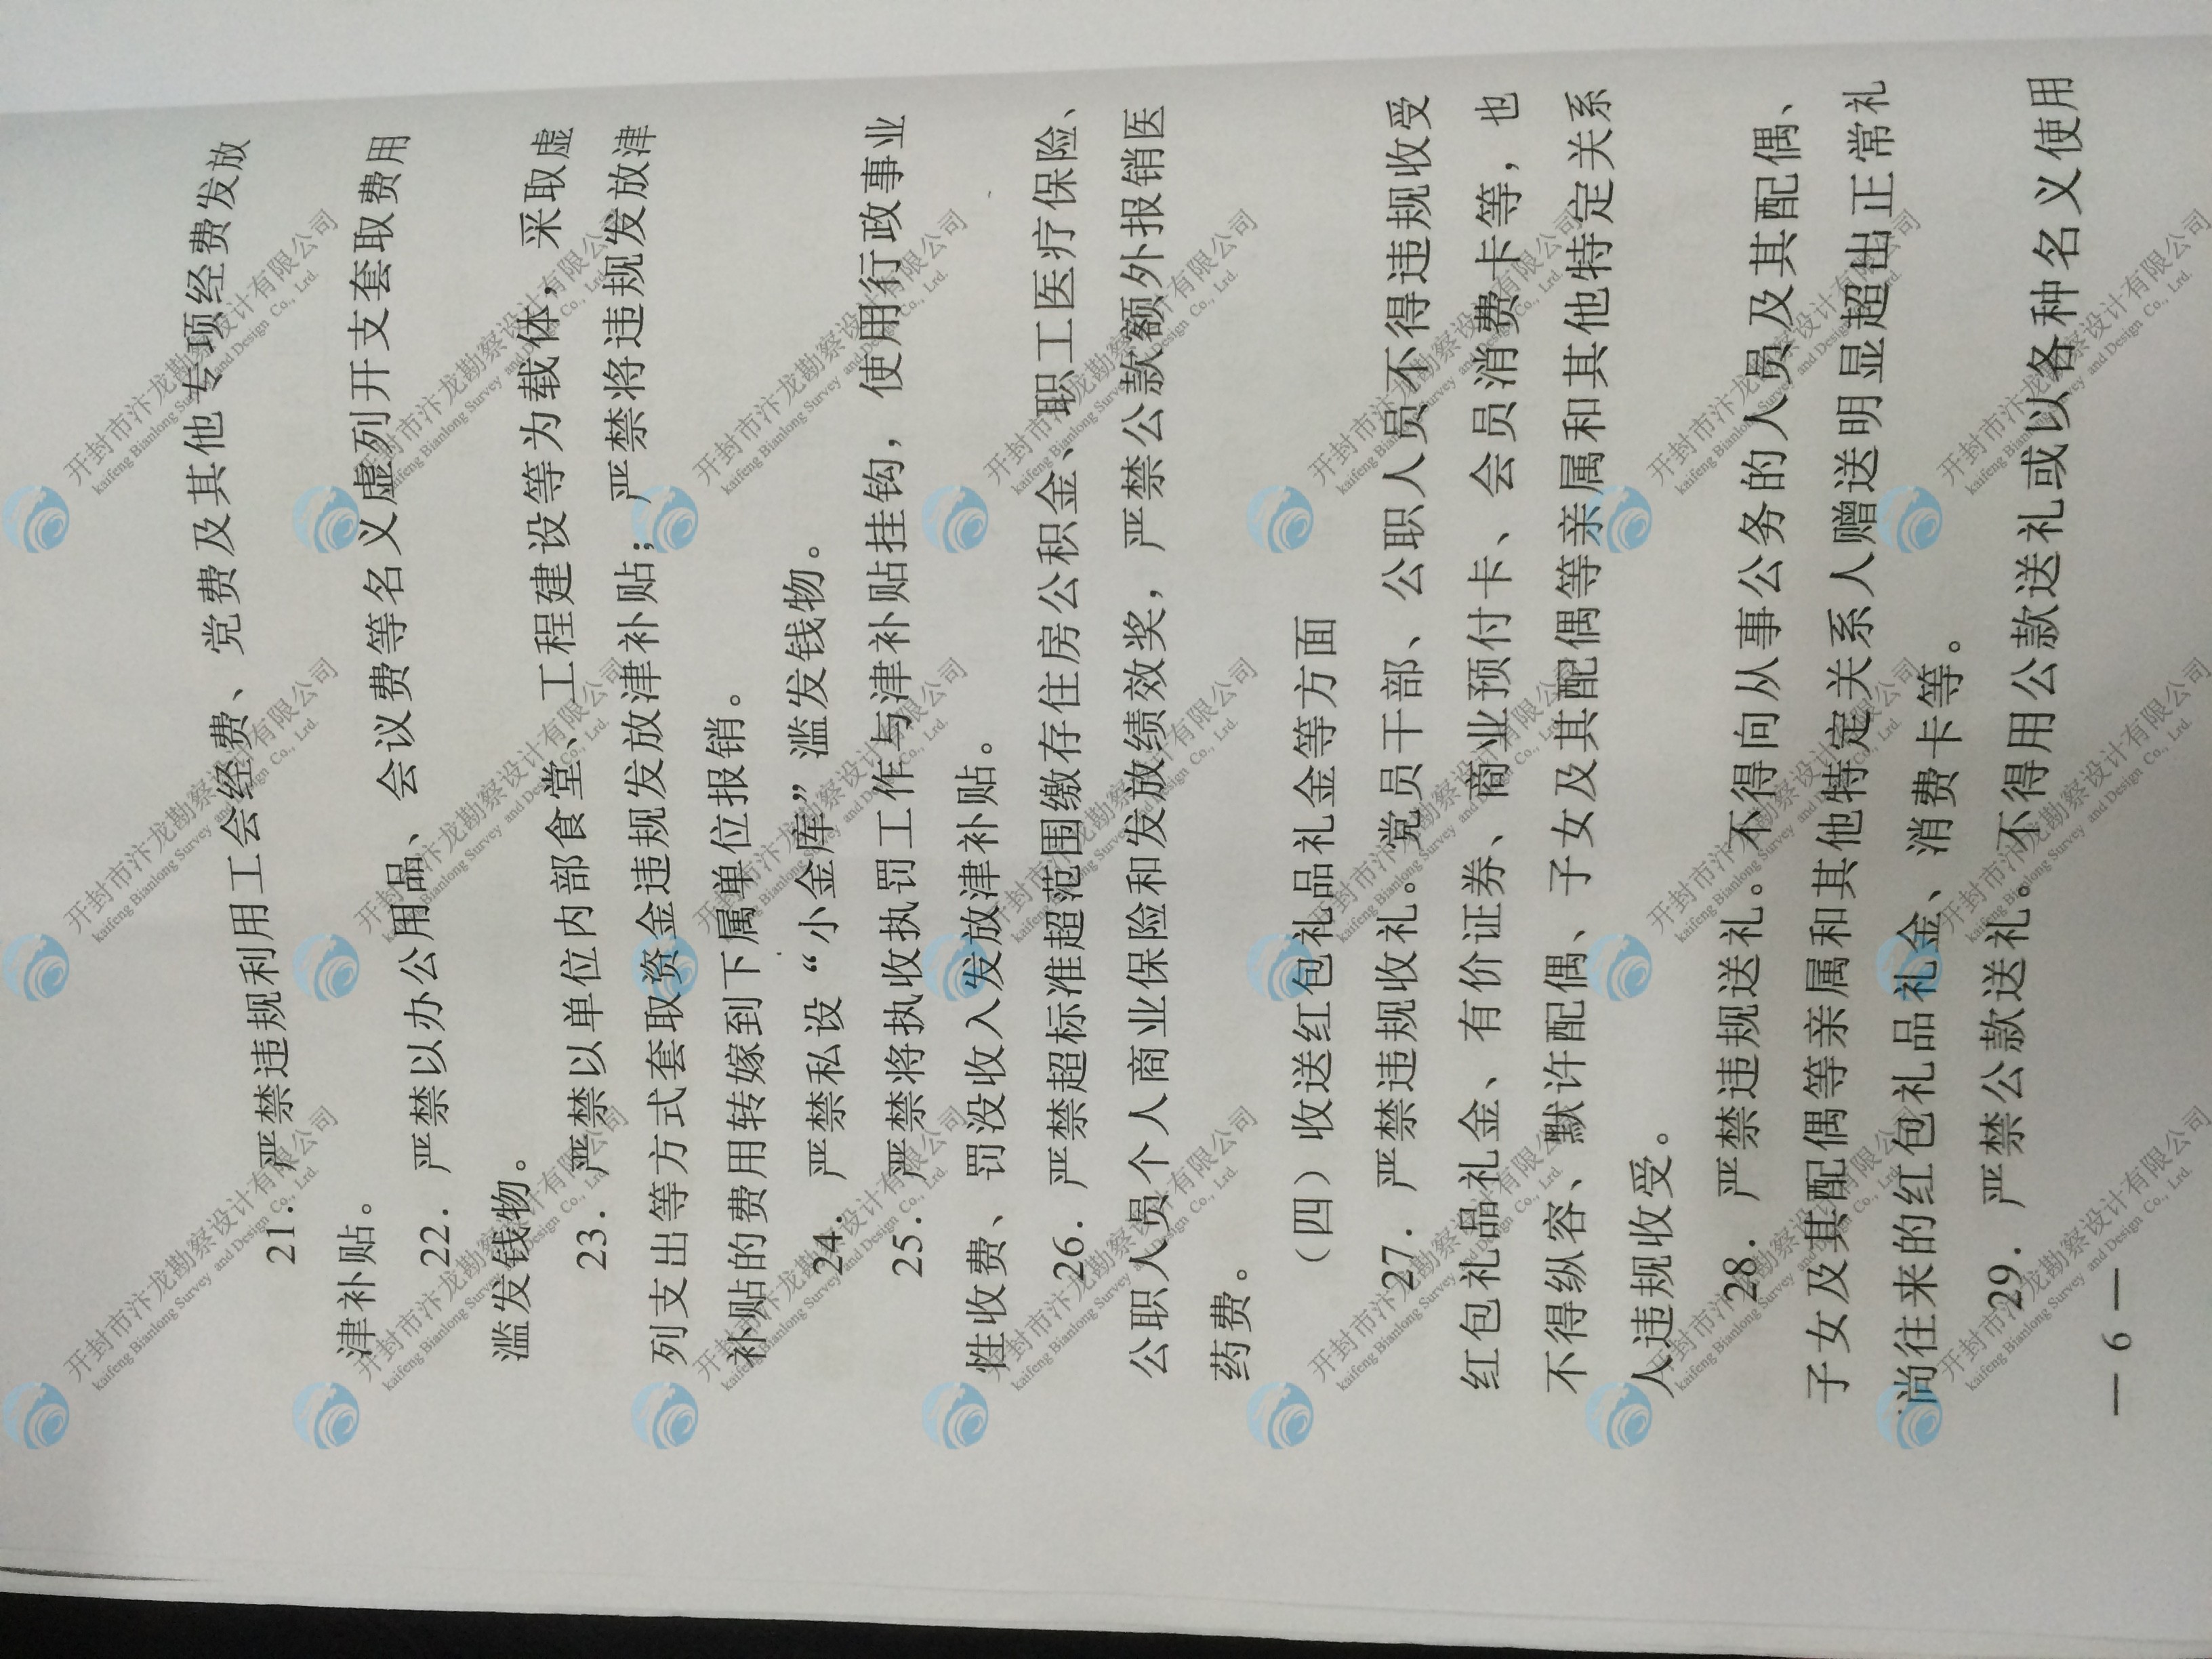 21. 严禁违规利用工会经费、党费及其他专项经费发放
津补贴。
22. 严禁以办公用品、会议费等名义虚列开支套取费用
滥发钱物。
23. 严禁以单位内部食堂、工程建设等为载体，采取虚
列支出等方式套取资金违规发放津补贴；严禁将违规发放津
补贴的费用转嫁到下属单位报销。
24. 严禁私设“小金库”滥发钱物。
25. 严禁将执收执罚工作与津补贴挂钩，使用行政事业
性收费、罚没收入发放津补贴。
26. 严禁超标准超范围缴存住房公积金、职工医疗保险、
公职人员个人商业保险和发放绩效奖，严禁公款额外报销医
药费。
（四）收送红包礼品礼金等方面
27. 严禁违规收礼。党员干部、公职人员不得违规收受
红包礼品礼金、有价证券、商业预付卡、会员消费卡等，也
不得纵容、默许配偶、子女及其配偶等亲属和其他特定关系
人违规收受。
28. 严禁违规送礼。不得向从事公务的人员及其配偶、
子女及其配偶等亲属和其他特定关系人赠送明显超出正常礼
尚往来的红包礼品礼金、消费卡等。
29. 严禁公款送礼。不得用公款送礼或以各种名义使用
— 6 —
开封市汴龙勘察设计有限公司
kaifeng Bianlong Survey and Design Co., Ltd.